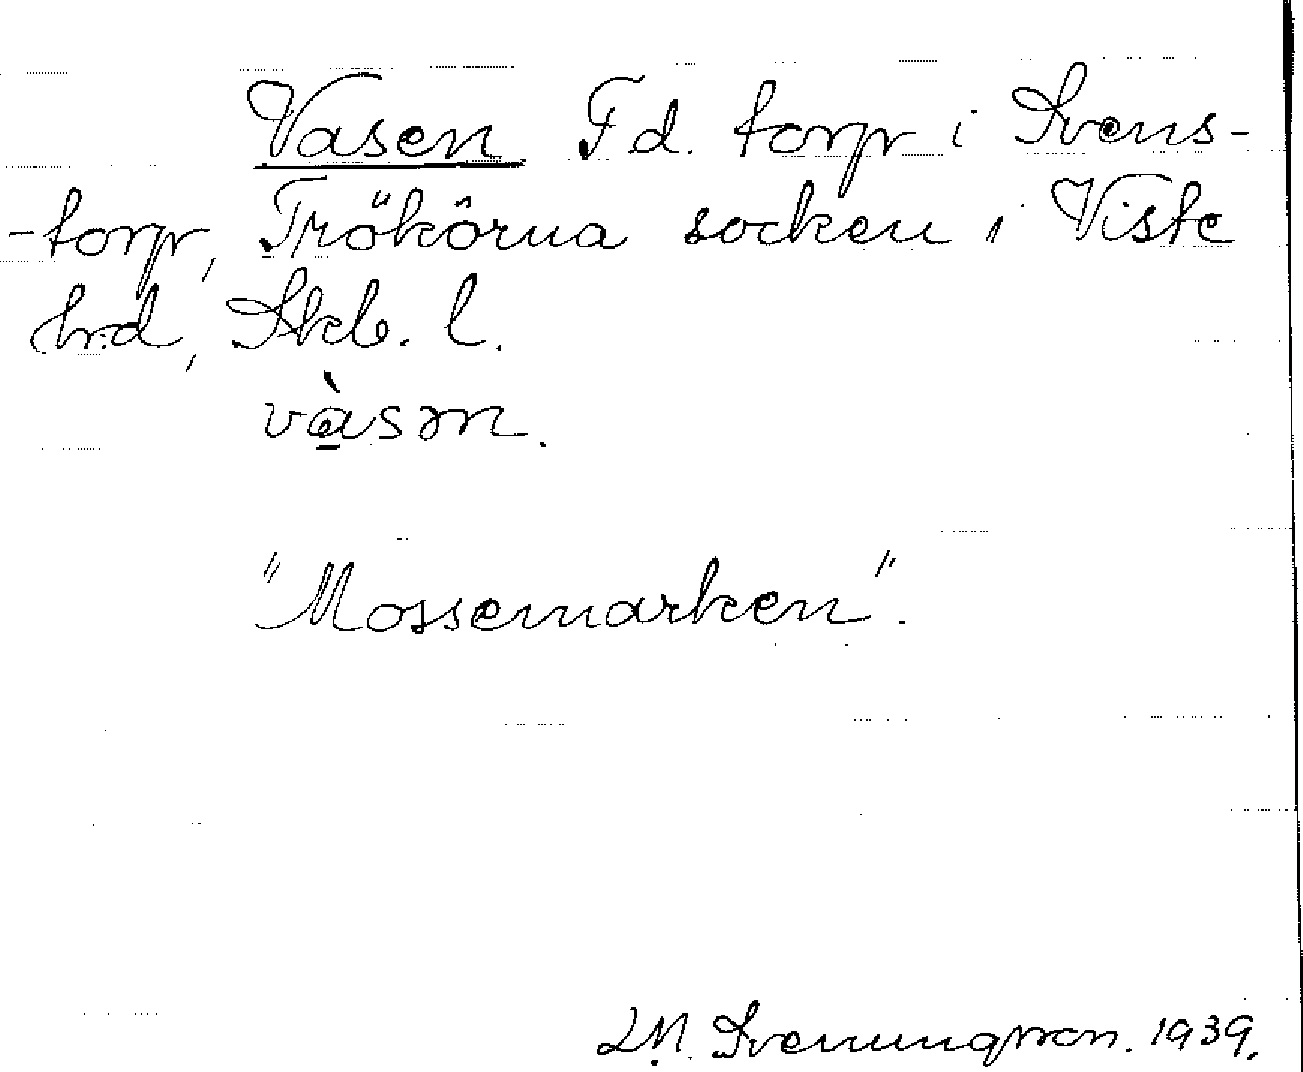 Vasen Fd. torp i Svens-
-torp, Trökörna socken i Viste
hrd, Skb. l.
vàsən.
"Mossemarken".
L.M. Svenungsson. 1939.